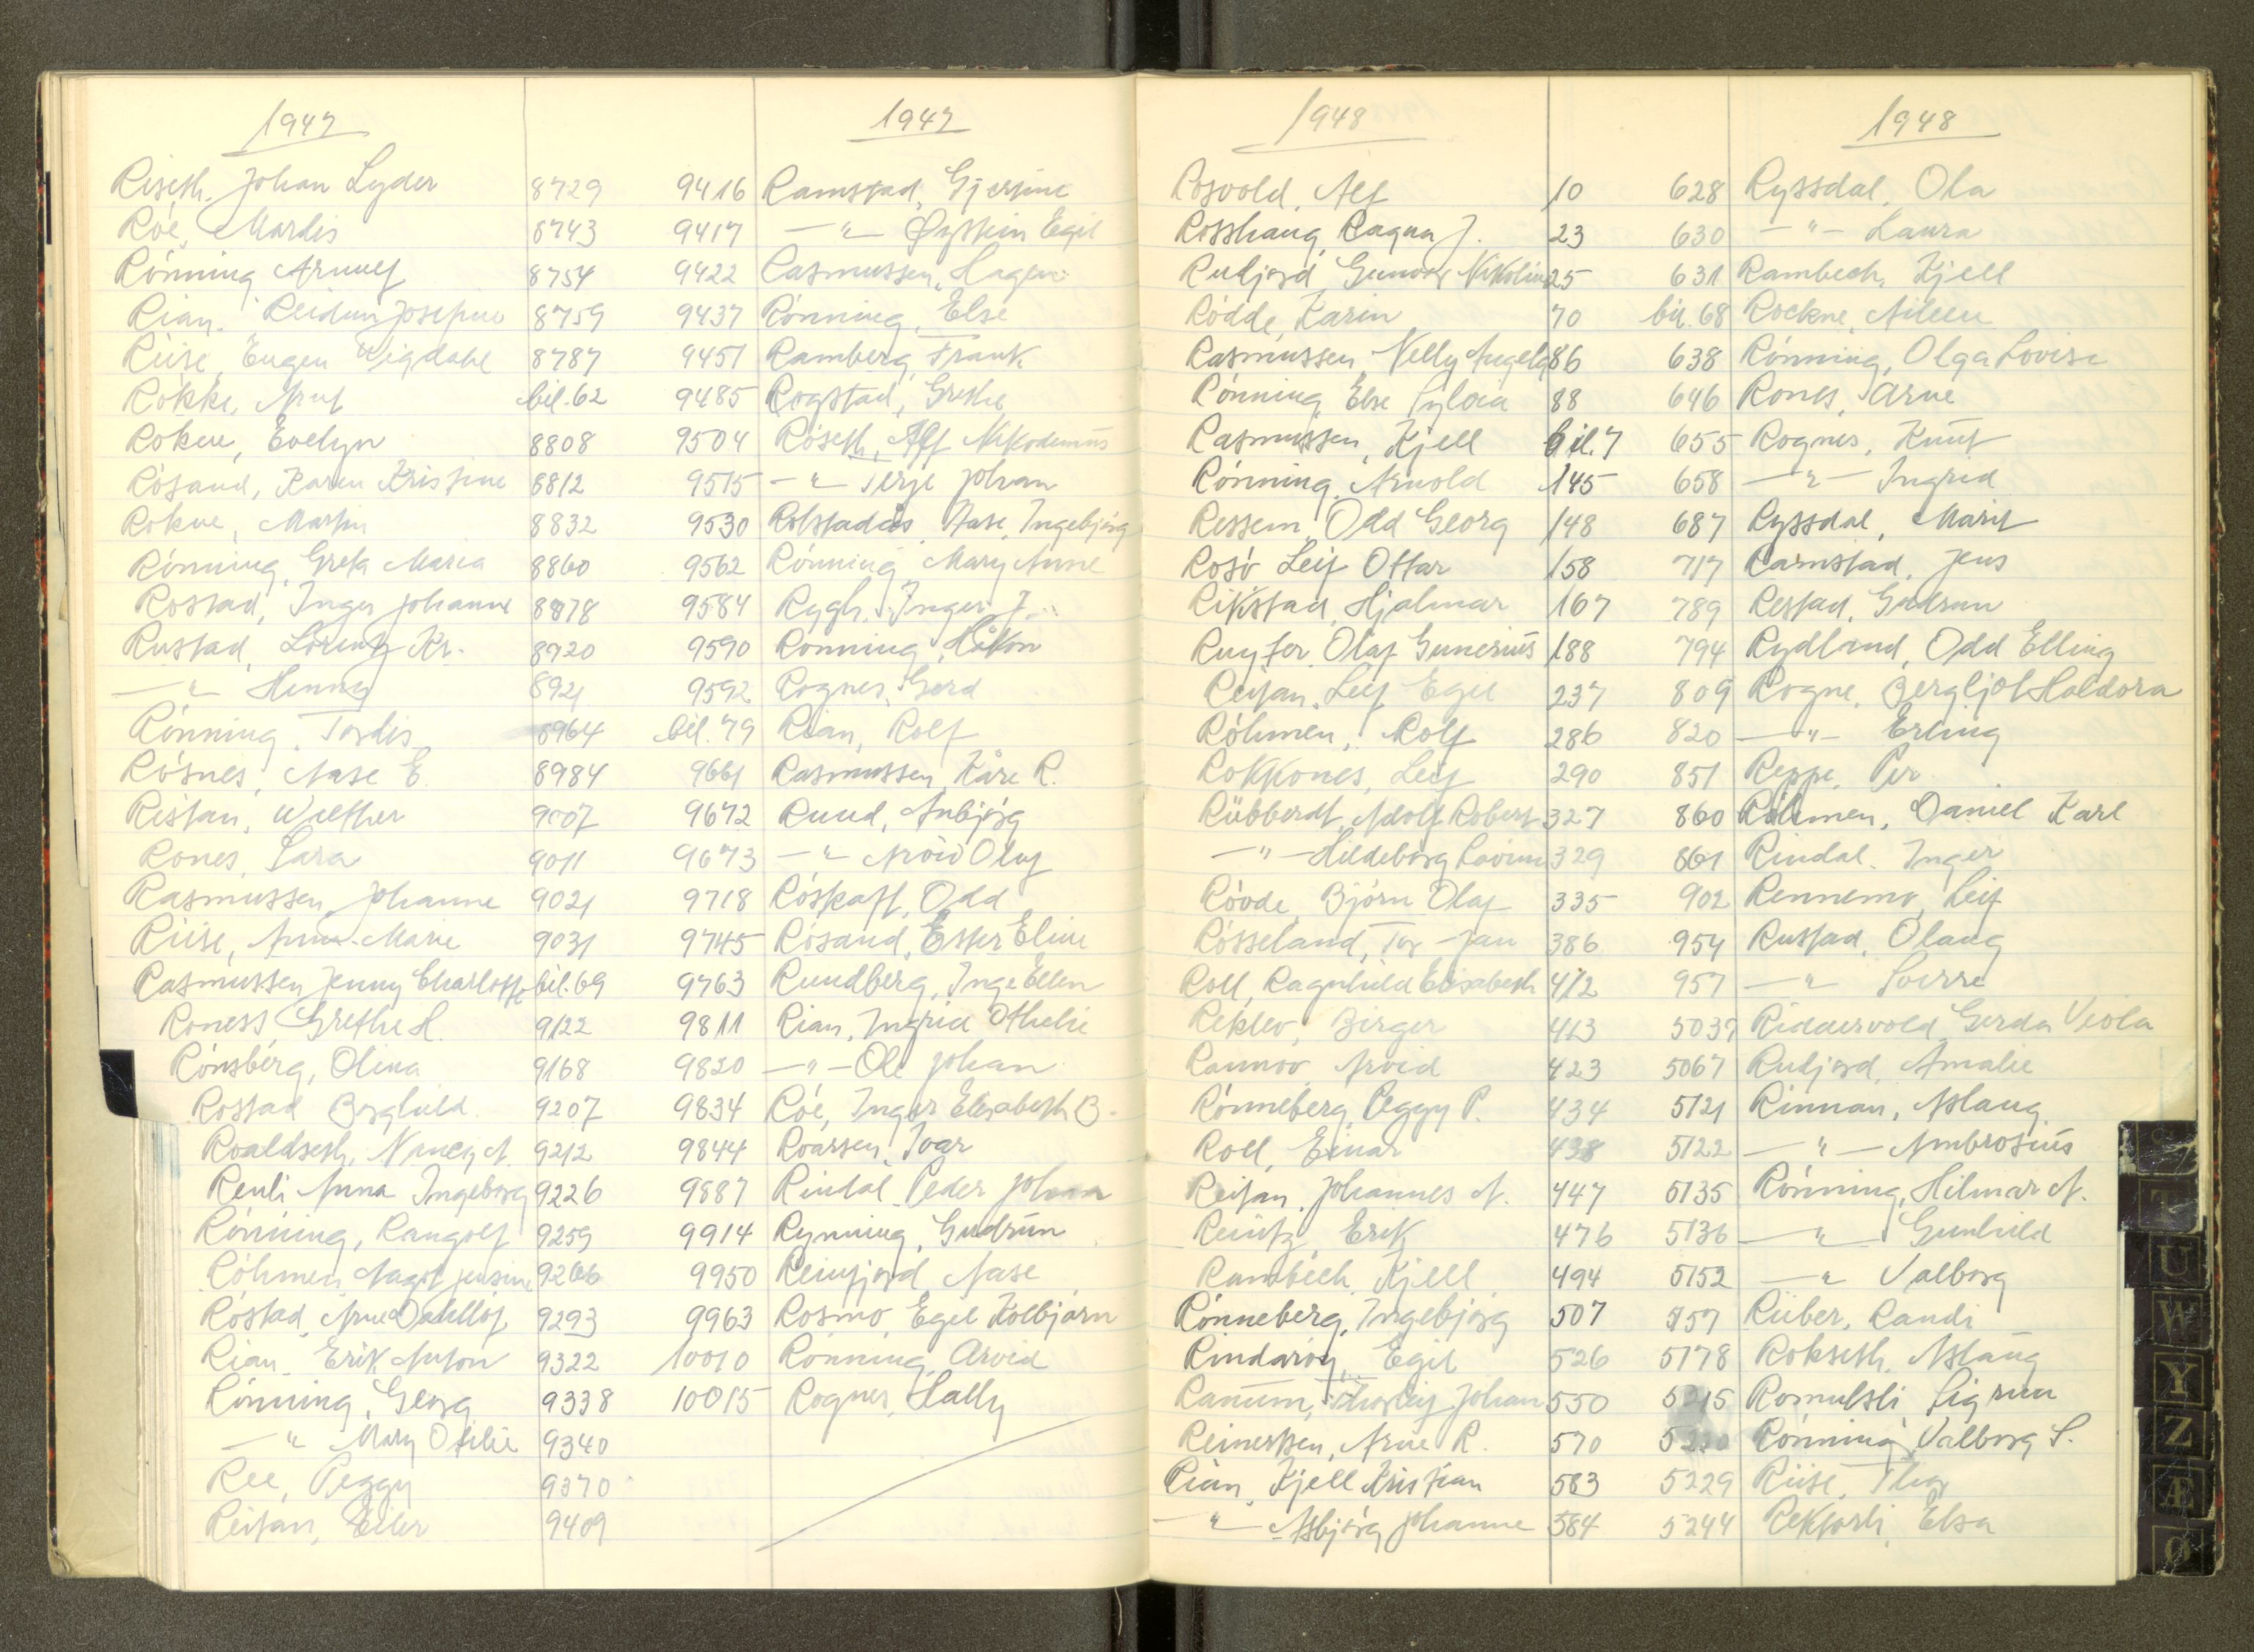 1947
Riseth. Johan Lyder 8729
Röe, Marlis 8743
Rönning Arnulf 8754
Rian. Reidun Josefine 8759
Riise, Eugen Vigdahl 8787
Rökke, Arnt bil. 62
Rokne, Evelyn 8808
Rösand, Karen Kristine 8812
Rokne, Martin 8832
Rönning, Greta Maria 8860
Rostad, Inger Johanne 8878
Rustad, Lorentz Kr. 8920
—"— Henny 8921
Rönning, Tordis 8964
Rösnes, Aase E. 8984
Reitan, Welther 9007
Rones, Sara 9011
Rasmussen, Johanne 9021
Riise, Anna-Marie 9031
Rasmussen Jenny Charlotte bil. 69
Roness Grethe H. 9122
Rönsberg, Olina 9168
Rostad Borghild 9207
Roaldseth, Nancy A. 9212
Renli Anna Ingeborg 9226
Rönning, Rangolf 9259
Röhmen, Aagot Jensine 9266
Rostad, Arne 9293
Rian, Erik Anton 9322
Rönning, Georg 9338
—"— Mary Otilie 9340
Ree, Peggy 9370
Reitan, Eiler 9409
1947
9416 Ramstad, Gjertine
9417 —"— Øystein Egil
9422 Rasmussen, Hagen
9437 Rönning, Else
9451 Ramberg, Frank
9485 Rogstad, Grethe
9504 Röseth, Alf Nikodemus
9515 —"— Terje Johan
9530 Rolstadås, Aase, Ingebjörg
9562 Rönning Mary Anne
9584 Rygh. Inger J.
9590 Rönning, Håkon
9592 Rognes, Gerd
bil. 79 Rian, Rolf
9661 Rasmussen, Kåre R.
9672 Ruud, Anbjörg
9673 —"— Arvid Oluf
9718 Röskaft, Odd
9745 Rösand, Ester Eline
9763 Rundberg, Inge Ellen
9811 Rian, Ingrid Othelie
9820 —"— Ole Johan
9834 Röe, Inger Elisabeth B.
9844 Roarsen, Ivar
9887 Rindal, Peder Johan
9914 Rynning, Gudrun
9950 Reinfjord, Aase
9963 Rosmo, Egil Kolbjörn
10010 Rönning, Arvid
10015 Rognes, Hally
1948
Rosvold, Alf 10
Rosshaug, Ragna J. 23
Rudjord, Gunvor Nikoline 25
Rödde, Karin 70
Rasmussen, Nelly Angela 86
Rönning, Else Sylvia 88
Rasmussen, Kjell bil. 7
Rönning, Arnold 145
Ressem, Odd Georg 148
Rosö Leif Ottar 158
Rikstad, Hjalmar 167
Ruyter, Olaf Gunerius 188
Reitan, Leif Egil 237
Röhmen, Rolf 286
Rokkones, Leif 290
Rübberdt, Adolf Robert 327
—"— Hildeborg Lovinn 329
Rövde, Björn Olaf 335
Rösseland, Tor-Jan 386
Roll, Ragnhild Elisabeth 412
Reklev, Birger 413
Rannov, Arvid 423
Rönneberg, Peggy P. 434
Roll, Einar 438
Reitan, Johannes A. 447
Reintz, Erik 476
Rambech, Kjell 494
Rönneberg, Ingebjörg 507
Rindaröy, Egil 526
Ramm, Thorleif Johan 550
Reinertsen, Arne R. 570
Rian, Kjell Kristian 583
—"— Asbjörg Johanne 584
1948
628 Ryssdal, Ola
630 —"— Laura
631 Rambech, Kjell
bil. 68 Rockne, Aileen
638 Rönning, Olga Lovise
646 Rones, Arne
655 Rognes, Knut
658 —"— Ingrid
687 Ryssdal, Marit
717 Ramstad, Jens
789 Restad, Gudrun
794 Rydland, Odd Elling
809 Rogne, Bergljot Haldora
820 —"— Erling
851 Reppe, Per
860 Röhmen, Daniel Karl
861 Rindal, Inger
902 Rennemo, Leif
954 Rustad, Olaug
957 —"— Sverre
5037 Riddervold, Gerda Viola
5067 Rudjord, Amalie
5121 Rinnan, Aslaug
5122 —"— Ambrosius
5135 Rönning, Hilmar A.
5136 —"— Gunhild
5152 —"— Valborg
5157 Rüber, Randi
5178 Rokseth, Aslaug
5215 Romulsli Sigrun
Rönning Valborg S.
5229 Riise, Thor
5244 Rektorli, Elsa
T
U
W
Y
Z
Æ
Ø